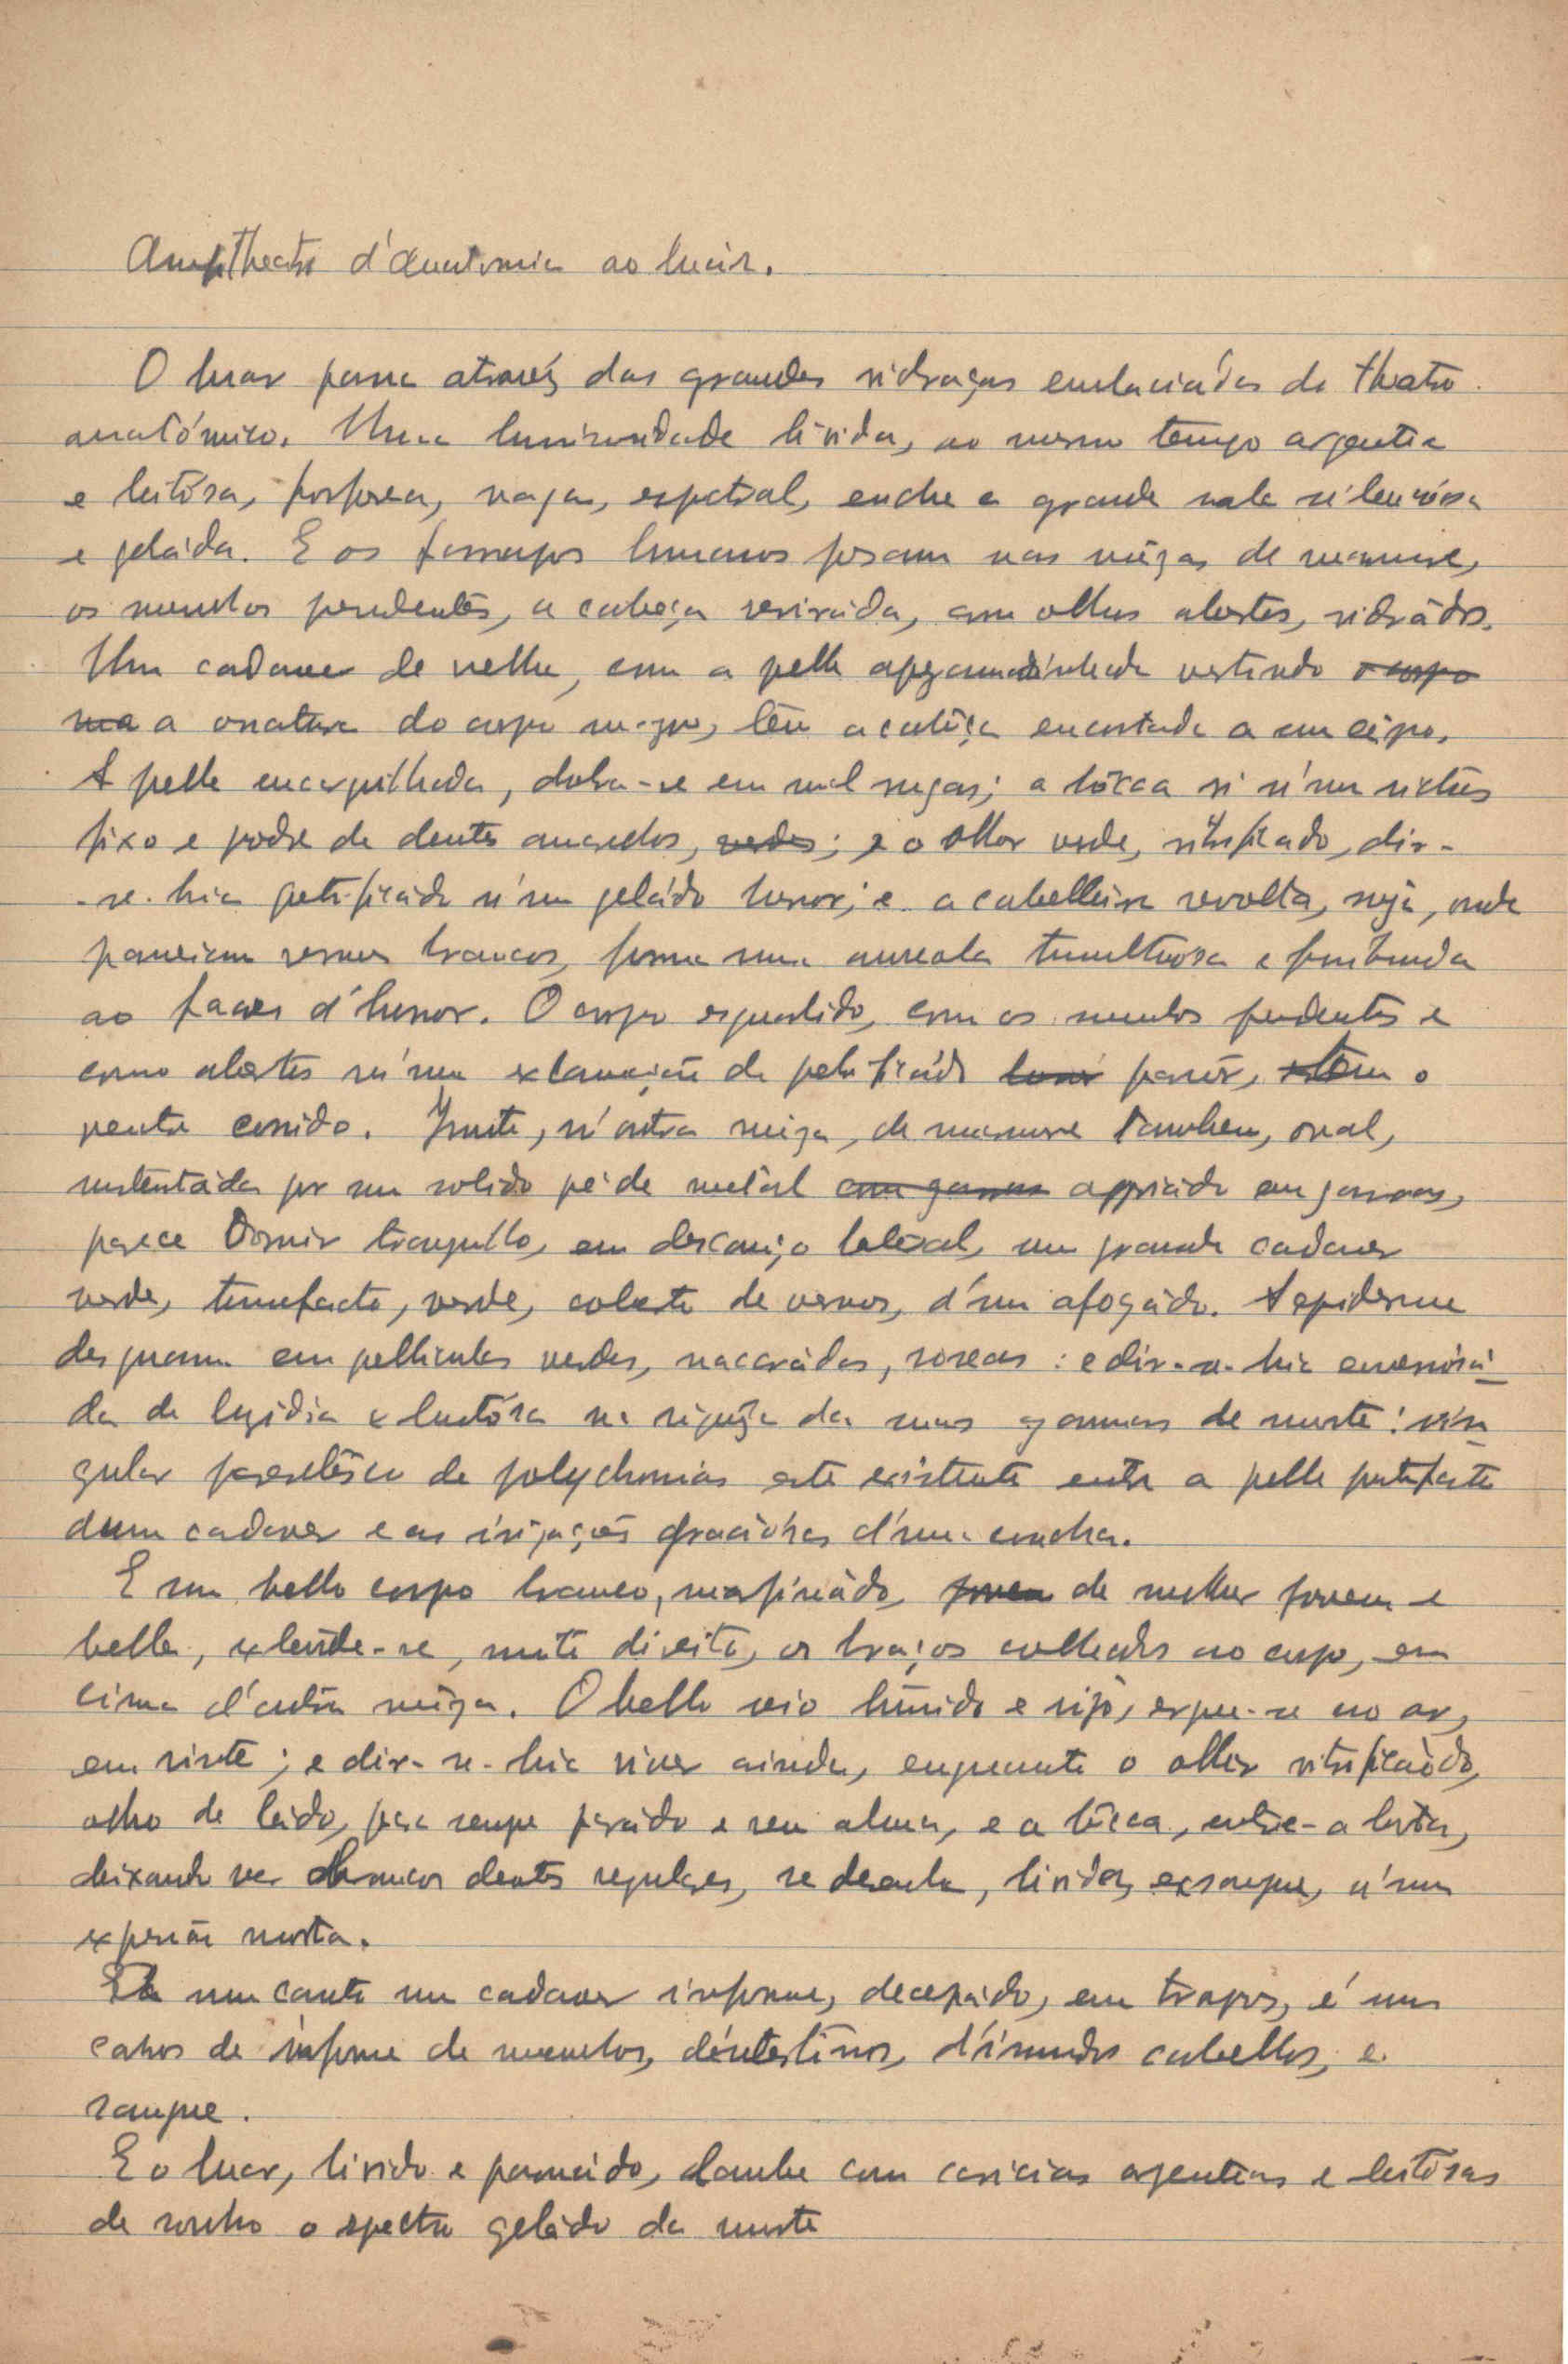 Amphitheatro d'Anatomia ao luar.
O luar passa atravéz das grandes vidraças do theatro
anatómico. Uma luminosidade livida, ao mesmo tempo argentea
e leitósa, vaga, espectral, enche a grande sala silenciósa
e geláda. E os farrapos humanos posam nas mêzas de marmore,
os membros pendentes, a cabeça reviráda, com olhos abertos, vidrádos.
Um cadaver de velha, com a pelle apergaminhada vestindo o corpo
a ossatura do corpo magro, têm a cabêça encostada a um cêpo.
A pelle encarquilhada, dobra-se em mil rugas; a bôcca ri n'um rictus
fixo e podre de dentes amarellos, verdes; e o olhar verde, vitrificado, dir-
-se-hia petrificádo n'um geládo horror; e a cabelleira revolta, suja, onde
passeiam vermes brancos, forma uma aureola tumultuosa e
ao d'horror. O corpo esqualido, com os membros pendentes e
como abertos n'uma exclamação de petrificádo pavôr, têm o
ventre corrido. Junto, n'outra mêza, de marmore tambem, oval,
sustentáda por um solido pé de metal com garras appoiádo em garras,
parece dormir tranquillo, em descanço lateral, um grande cadaver
verde, tumefacto, verde, coberto de vermos, d'um afogádo. A epiderme
desquama em pelliculas verdes, nacarádas, roseas: e dir-se-hia
da de e na riquêza das suas gammas de morte: sin
gular de polychromias este existente entre a pelle putrefacta
dum cadaver e as irisações graciósas d'uma concha.
E um bello corpo branco, marfináda, jovem de mulher jovem e
bella, extende-se, muito direito, os braços collados ao corpo, em
cima d'outra mêza. O bello seio túmido e rijo, ergue-se no ar,
em riste; e dir-se-hia viver ainda, emquanto o olhar vitrificádo,
olho de para sempre parádo e sem alma, e a bôcca, entre-aberta,
deixando ver brancos dentes regulares, se livida, exsangue, n'uma
expressão morta.
num canto um cadaver informe, decepádo, em trapos, é um
cahos de informe de membros, d'intestinos, d'immundos cabellos, e
sangue.
E o luar, livido e pasmádo, banha com caricias argenteas e leitósas
de sonho o espectro geládo da morte